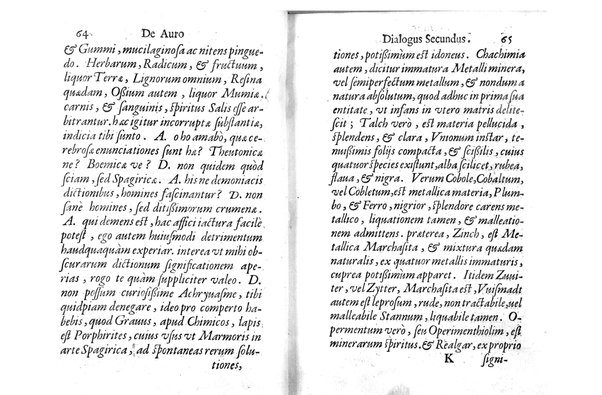 64 De Auro
& Gummi, mucilaginosa ac nitens pingue-
do. Herbarum, Radicum, & fructuum,
liquor Terræ, Lignorum omnium, Resina
quædam, Oßium autem, liquor Mumiæ.
carnis, & sanguinis, spiritus Salis esse ar-
bitrantur. hæc igitur incorruptæ substantiæ,
indicia tibi sunto. A. o ho amabò, quæ ce-
rebrosæ enunciationes sunt hæ? Theutonicæ
ne? Boemicæ ve? D. non quidem quòd
sciam, sed Spagiricæ. A. his ne demoniacis
dictionibus, homines fascinantur? D. non
sanè homines, sed ditißimorum crumenæ.
A. qui demens est, hac affici iactura facilè
potest, ego autem huiusmodi detrimentum
haudquaquàm experiar. interea vt mihi ob-
scurarum dictionum significationem ape-
rias, rogo te quàm suppliciter valeo. D.
non possum curiosißime Achryuasme, tibi
quidpiam denegare, ideo pro comperto ha-
bebis, quod Grauus, apud Chimicos, lapis
est Porphirites, cuius vsus vt Marmoris in
arte Spagirica, ad spontaneas rerum solu-
tiones,
Dialogus Secundus. 65
tiones, potißimùm est idoneus. Chachimia
autem, dicitur immatura Metalli minera,
vel semiperfectum metallum, & nondum a
natura absolutum, quod adhuc in prima sua
entitate, vt infans in vtero matris delite-
scit; Talch verò, est materia pellucida,
splendens, & clara, Vnionum instar, te-
nuißimis folijs compacta, & scißilis, cuius
quatuor species existunt, alba scilicet, rubea,
flaua, & nigra. Verum Cobole, Cobaltum,
vel Cobletum, est metallica materia, Plum-
bo, & Ferro, nigrior, splendore carens me-
tallico, liquationem tamen, & malleatio-
nem admittens. præterea, Zinch, est Me-
tallica Marchasita, & mixtura quædam
naturalis, ex quatuor metallis immaturis,
cuprea potißimum apparet. Itidem Zuuit-
ter, vel Zytter, Marchasita est, Vuismadt
autem est leprosum, rude, non tractabile, vel
malleabile Stannum, liquabile tamen. O-
permentum verò, seu Operimenthiolim, est
minerarum spiritus. & Realgar, ex proprio
K signi-